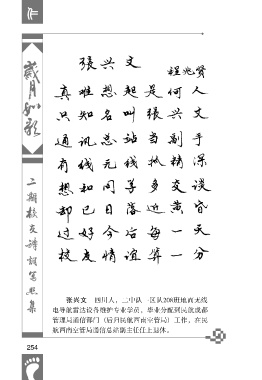 岁月如歌
二期校友诗词笔墨集
张兴文
程兆贤
真难想起是何人
只知名叫张兴文
通讯总站当副手
有线无线抓精深
想和同学多交谈
却已日落近黄昏
过好今后每一天
校友情谊第一分
张兴文 四川人，二中队一区队208班地面无线
电导航雷达设备维护专业学员，毕业分配到民航成都
管理局通信部门（后归民航西南空管局）工作，在民
航西南空管局通信总站副主任任上退休。
254